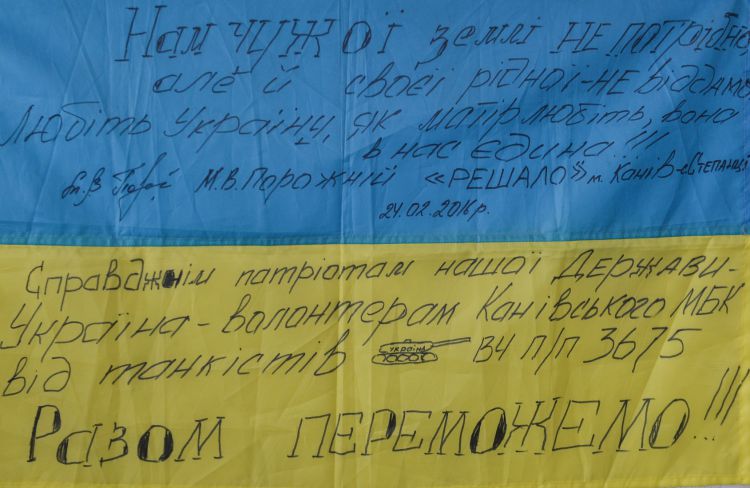 Нам чужої землі не потрібно,
але й своєї рідної-не віддамо
Любіть Україну, як матір любіть, вона
в нас єдина!!!
М.В.Порожній «РЕШАЛО" м. Канів-с.Степанці
24.02.2016р.
Справджнім патріотам нашої Держави-
Україна-волонтерам Канівського МБК
від танкістів Україна ВЧ п/п 3675
Разом ПЕРЕМОЖЕМО!!!